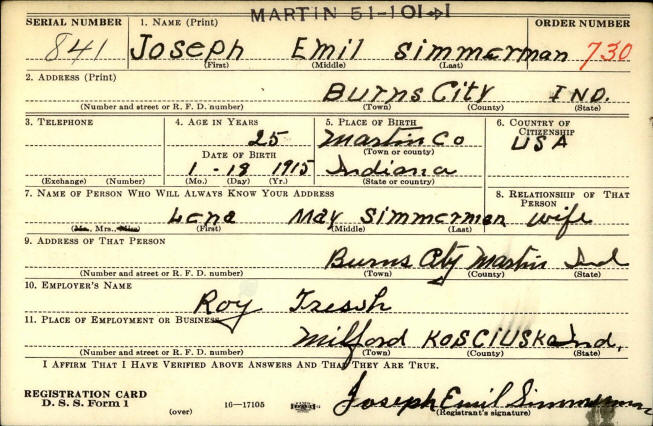 MARTIN 51-101-1
SERIAL NUMBER 1. NAME (Print) ORDER NUMBER
841 Joseph Emil Simmerman 730
(First) (Middle) (Last)
2. ADDRESS (Print)
Burns City IND.
(Number and street or R. F. D. number) (Town) (County) (State)
3. TELEPHONE 4. AGE IN YEARS 5. PLACE OF BIRTH 6. COUNTRY OF CITIZENSHIP
25 Martin Co USA
DATE OF BIRTH (Town or county)
1-19 1915 Indiana
(Exchange) (Number) (Mo.) (Day) (Yr.) (State or country)
7. NAME OF PERSON WHO WILL ALWAYS KNOW YOUR ADDRESS 8. RELATIONSHIP OF THAT PERSON
Lena May Simmerman wife
(Mr., Mrs., Miss) (First) (Middle) (Last)
9. ADDRESS OF THAT PERSON
Burns City Martin Ind
(Number and street or R. F. D. number) (Town) (County) (State)
10. EMPLOYER'S NAME
Roy Tresh
11. PLACE OF EMPLOYMENT OR BUSINESS
Milford KOSCIUSKO Ind.
(Number and street or R. F. D. number) (Town) (County) (State)
I AFFIRM THAT I HAVE VERIFIED ABOVE ANSWERS AND THAT THEY ARE TRUE.
REGISTRATION CARD
D. S. S. Form 1 (over) 16—17105 Joseph Emil Simmerman
(Registrant's signature)